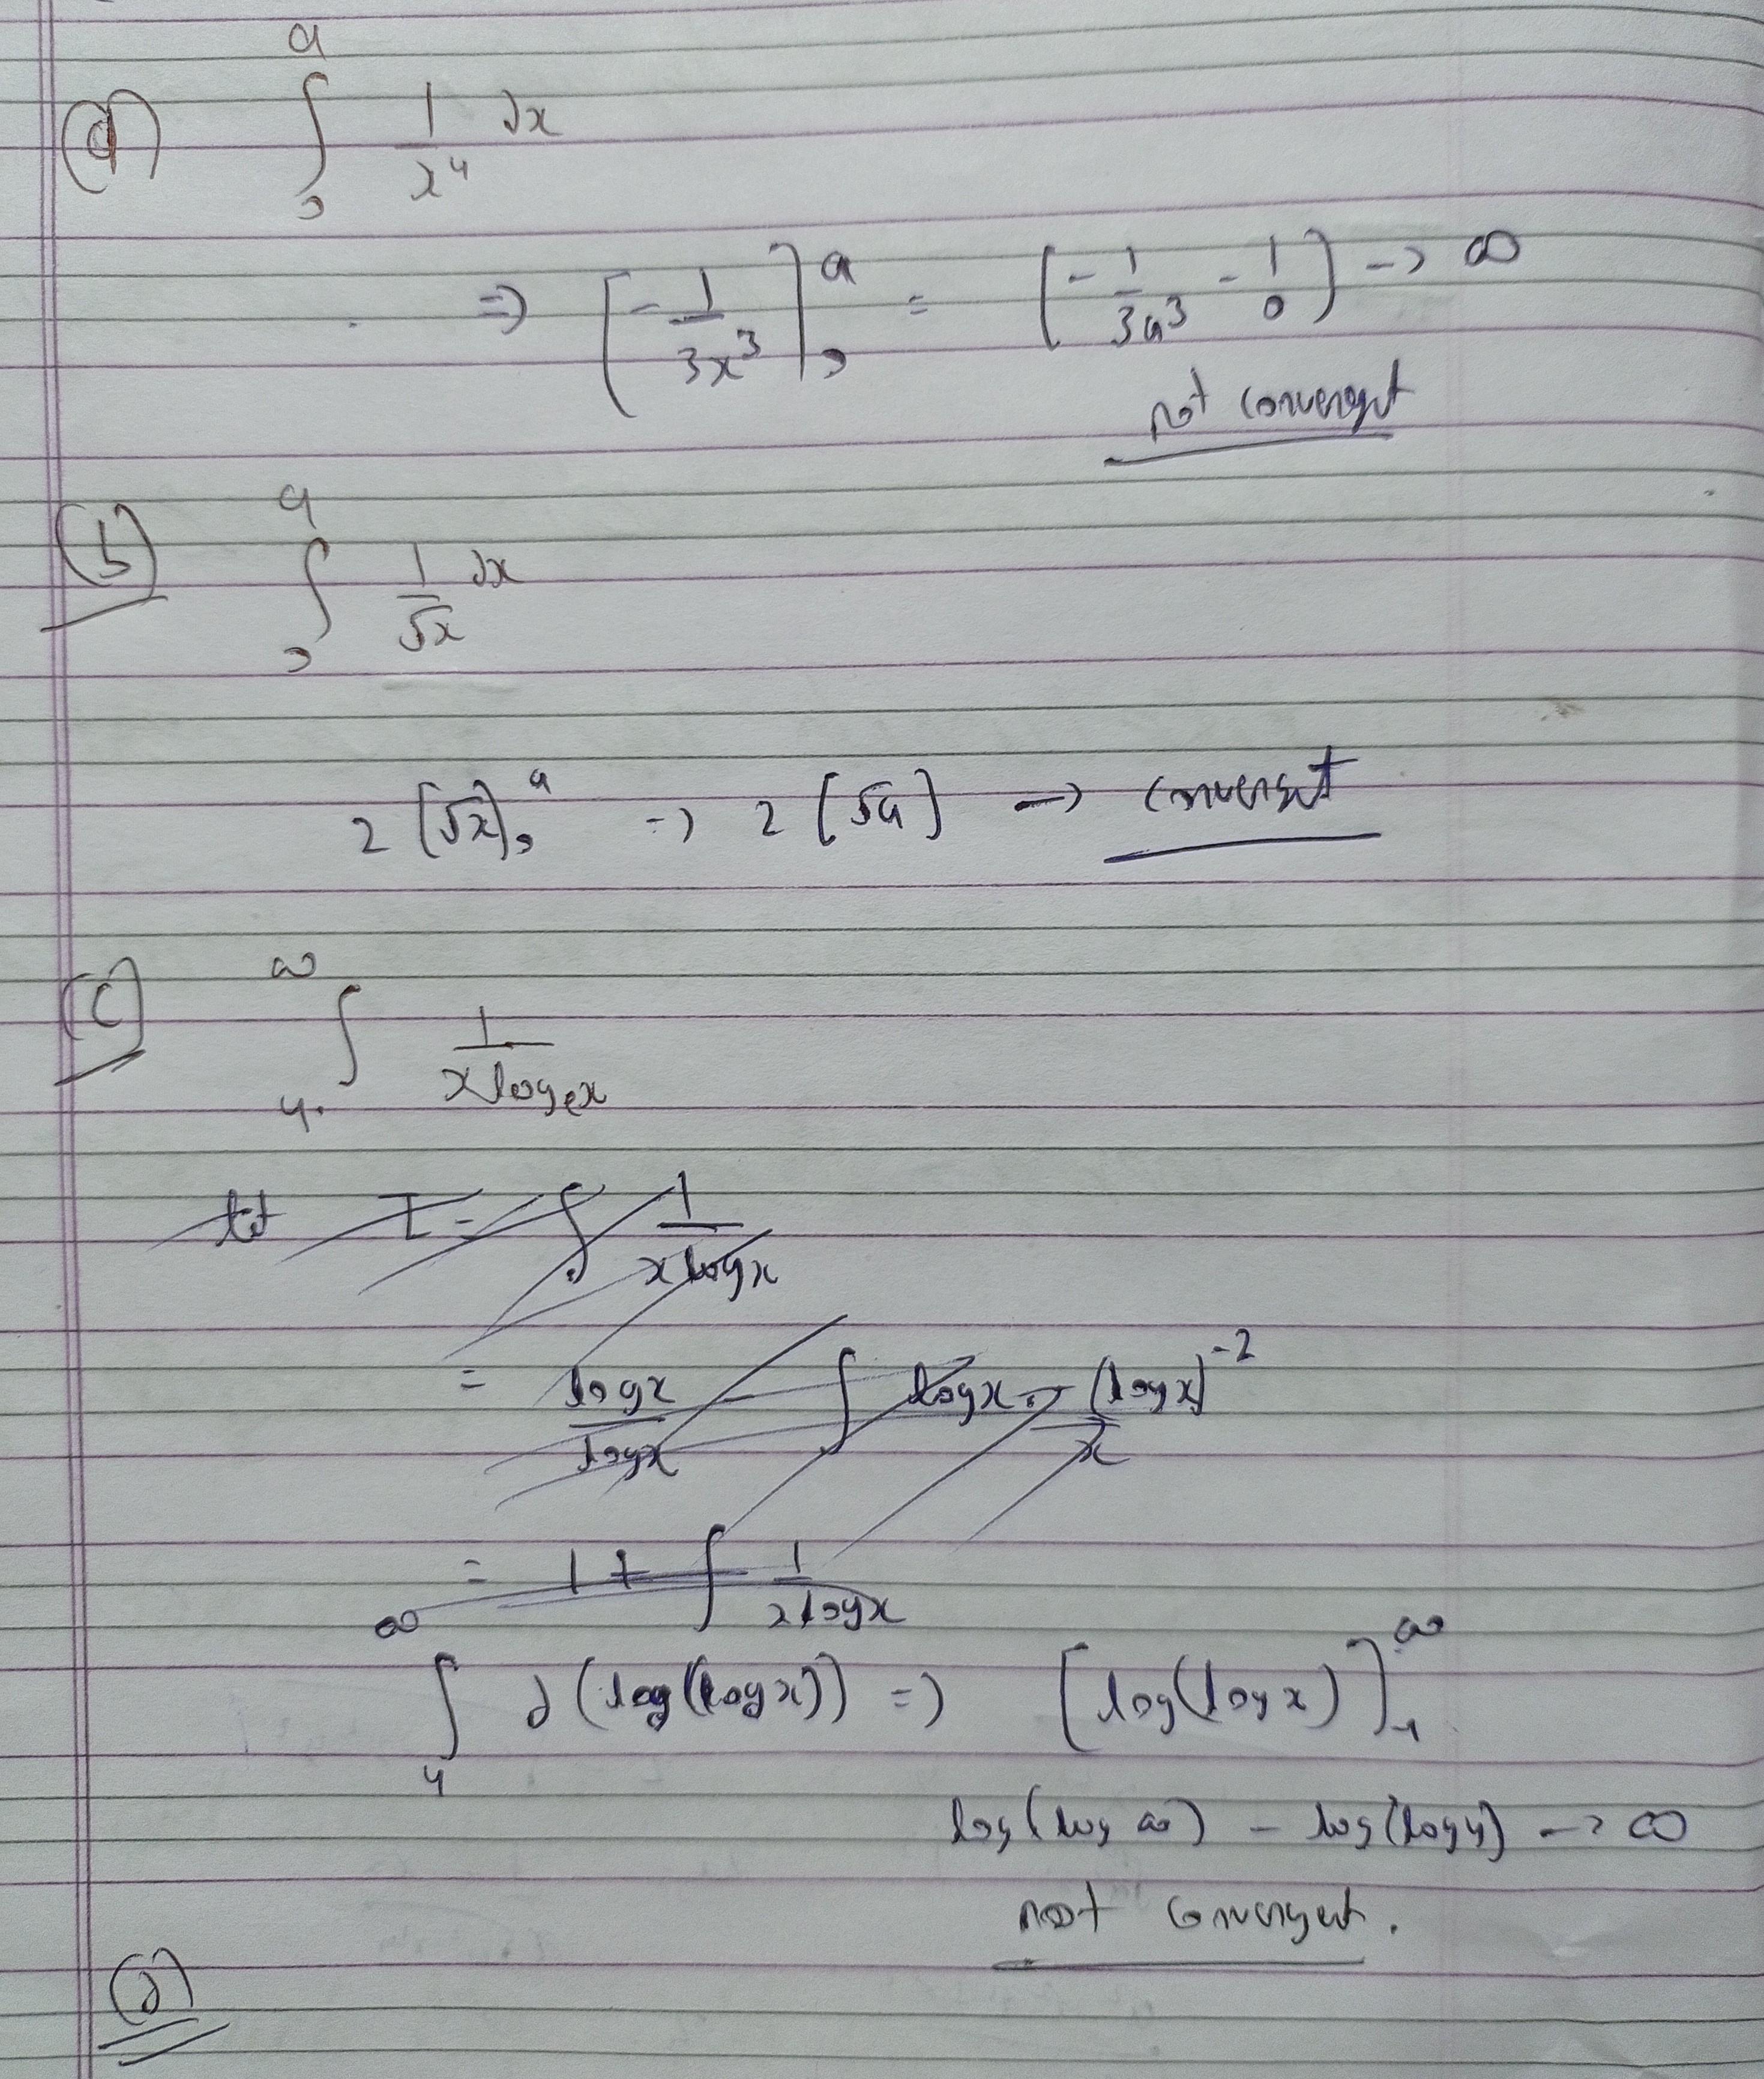 (a) ∫₀ᵃ 1/x⁴ dx
⇒ [-1/3x³]₀ᵃ = (-1/3a³ - 1/0) → ∞
not convergent
(b) ∫₀ᵃ 1/√x dx
2[√x]₀ᵃ ⇒ 2[√a] → convergent
(c) ∫₄^∞ 1/(x logₑx)
let I = ∫ 1/(x logx)
= logx/logx - ∫ logx · -(logx)⁻²/x
= 1 + ∫ 1/(x logx)
∫₄^∞ d(log(logx)) ⇒ [log(logx)]₄^∞
log(log ∞) - log(log4) → ∞
not convergent.
(d)